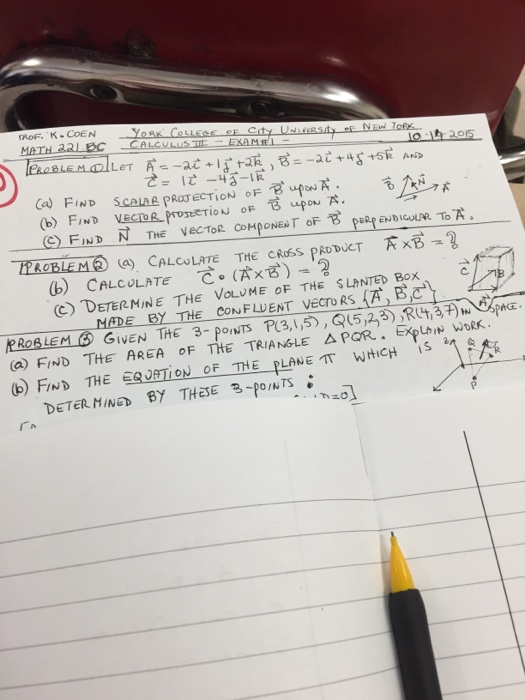 PROF. K. COEN YORK COLLEGE OF CITY UNIVERSITY OF NEW YORK
MATH 221 BC CALCULUS III - EXAM#1 - 10-14-2015
PROBLEM ① LET A⃗ = -2i⃗ + 1j⃗ + 2k⃗, B⃗ = -2i⃗ + 4j⃗ + 5k⃗ AND
C⃗ = 1i⃗ - 4j⃗ - 1k⃗
(a) FIND SCALAR PROJECTION OF B⃗ UPON A⃗. B⃗ N⃗ A⃗
(b) FIND VECTOR PROJECTION OF B⃗ UPON A⃗.
(C) FIND N⃗ THE VECTOR COMPONENT OF B⃗ PERPENDICULAR TO A⃗.
PROBLEM ② (a) CALCULATE THE CROSS PRODUCT A⃗ × B⃗ = ?
(b) CALCULATE C⃗ • (A⃗ × B⃗) = ? C⃗ B
(C) DETERMINE THE VOLUME OF THE SLANTED BOX
MADE BY THE CONFLUENT VECTORS {A⃗, B⃗, C⃗} A⃗
PROBLEM ③ GIVEN THE 3-POINTS P(3,1,5), Q(5,2,3), R(4,3,7) IN SPACE.
(a) FIND THE AREA OF THE TRIANGLE △PQR. EXPLAIN WORK.
(b) FIND THE EQUATION OF THE PLANE π WHICH IS Q R
DETERMINED BY THESE 3-POINTS: P
D=0]